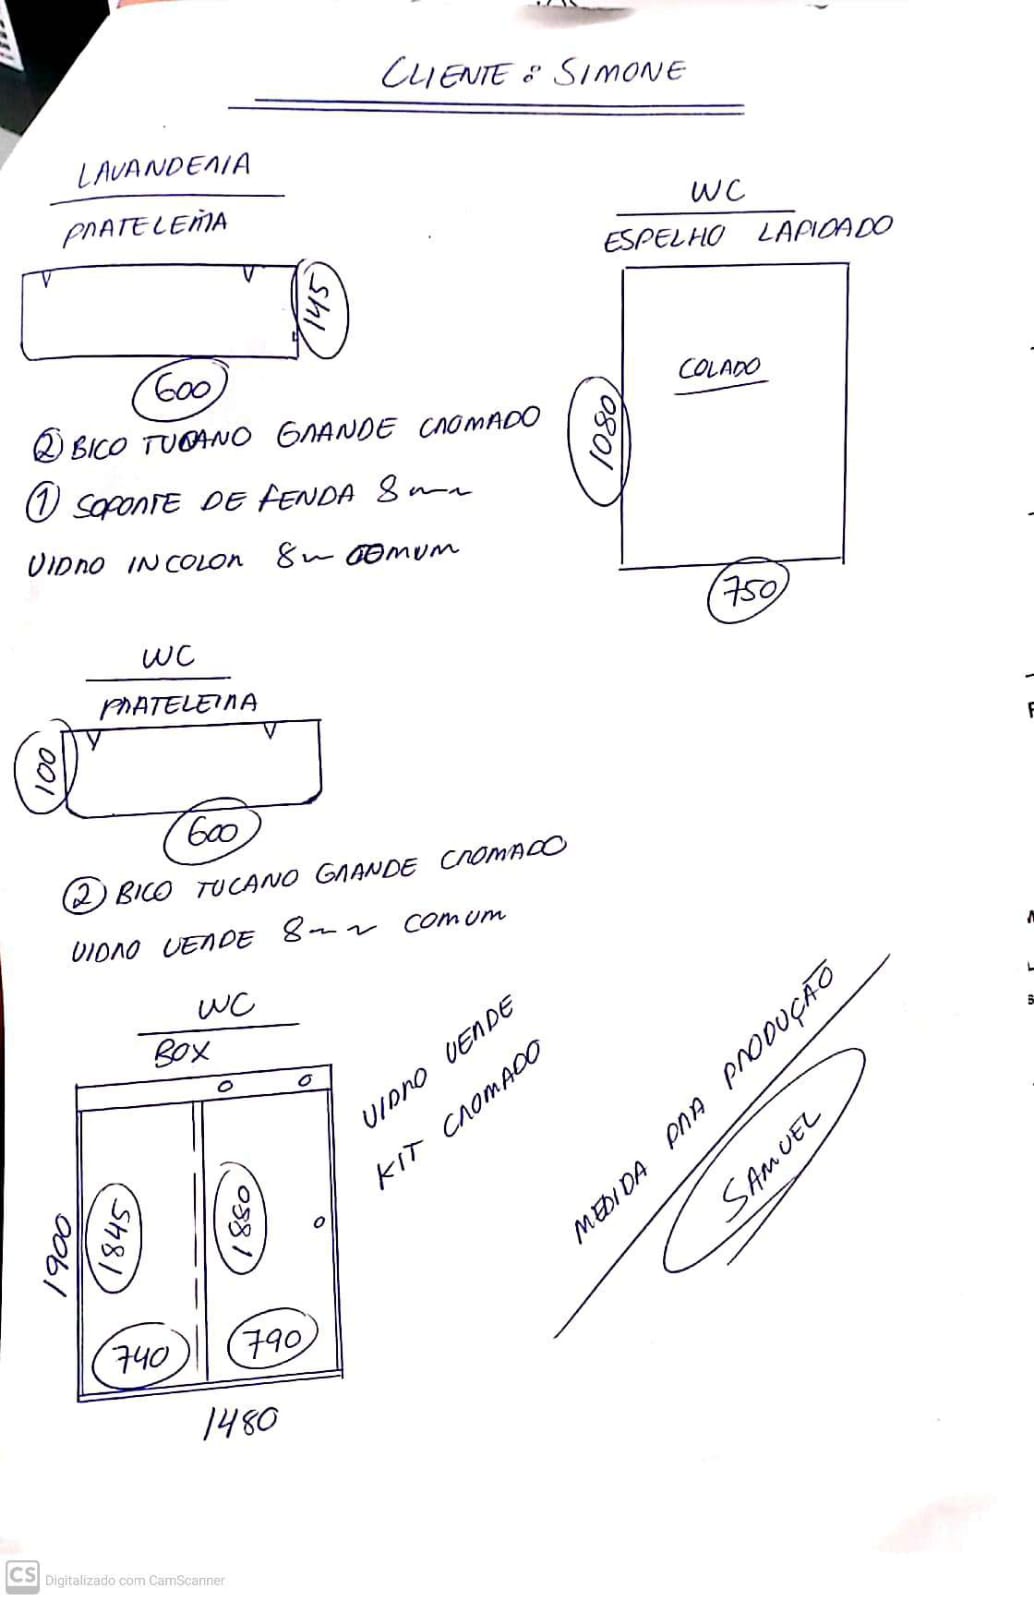 CLIENTE : SIMONE
LAVANDERIA
PRATELEIRA
145
600
② BICO TUCANO GRANDE CROMADO
① SOPORTE DE FENDA 8mm
VIDRO INCOLOR 8m COMUM
WC
ESPELHO LAPIDADO
COLADO
1080
750
WC
PRATELEIRA
100
600
② BICO TUCANO GRANDE CROMADO
VIDRO VERDE 8mm COMUM
WC
BOX
1900
1845
1880
740
790
1480
VIDRO VERDE
KIT CROMADO
MEDIDA PRA PRODUÇÃO
SAMUEL
CS Digitalizado com CamScanner